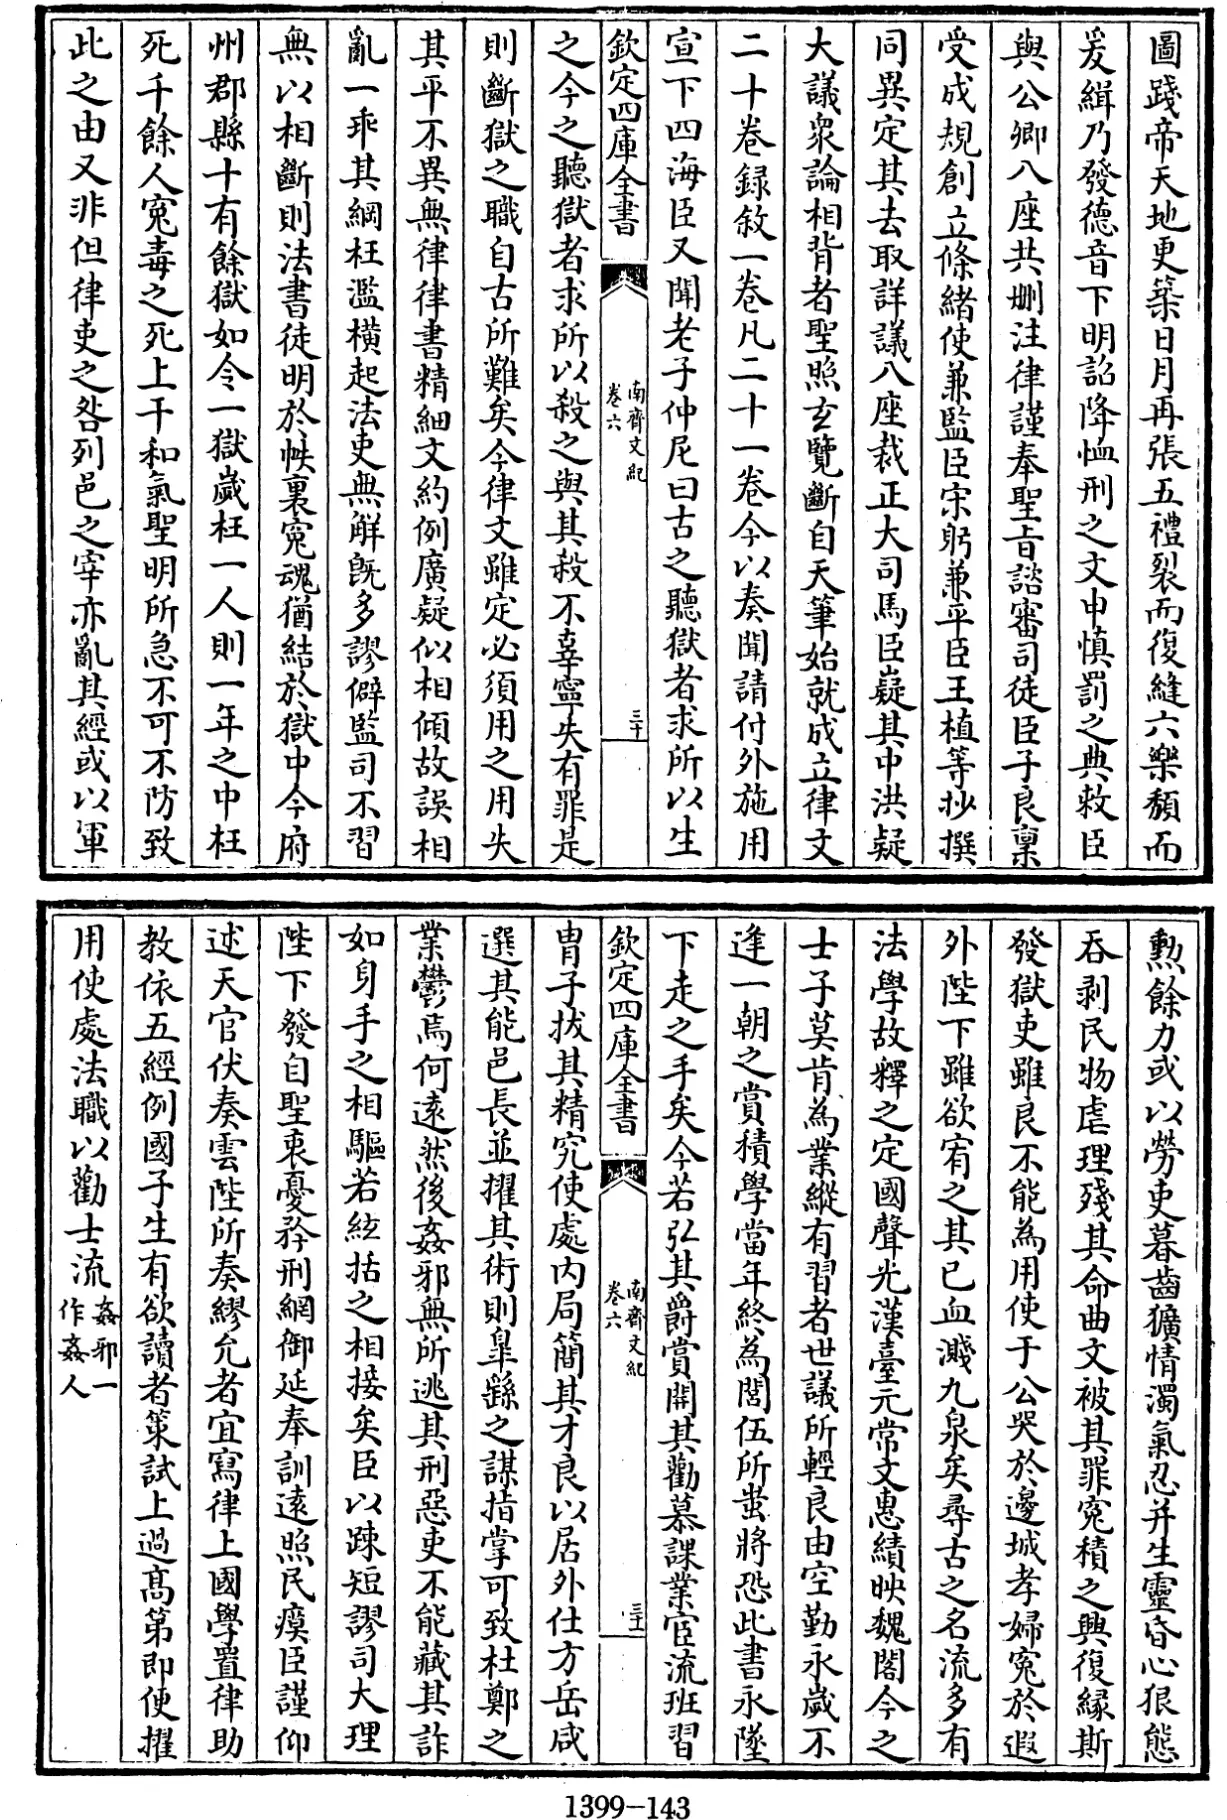 圖踐帝天地更築日月再張五禮裂而復縫六樂頽而
爰緝乃發德音下明詔降恤刑之文申慎罰之典敕臣
與公卿八座共刪注律謹奉聖旨諮審司徒臣子良稟
受成規創立條緒使兼監臣宋躬兼平臣王植等抄撰
同異定其去取詳議八座裁正大司馬臣嶷其中洪疑
大議衆論相背者聖照玄覽斷自天筆始就成立律文
二十卷録敘一卷凡二十一卷今以奏聞請付外施用
宣下四海臣又聞老子仲尼曰古之聽獄者求所以生
欽定四庫全書
南齊文紀
卷六
三十
之今之聽獄者求所以殺之與其殺不辜寧失有罪是
則斷獄之職自古所難矣今律文雖定必須用之用失
其平不異無律律書精細文約例廣疑似相傾故誤相
亂一乖其綱枉濫横起法吏無解旣多謬僻監司不習
無以相斷則法書徒明於帙裏寃魂猶結於獄中今府
州郡縣十有餘獄如令一獄歲枉一人則一年之中枉
死千餘人寃毒之死上干和氣聖明所急不可不防致
此之由又非但律吏之咎列邑之宰亦亂其經或以軍
勲餘力或以勞吏暮齒獷情濁氣忍并生靈昏心狠態
吞剥民物虐理殘其命曲文被其罪寃積之興復縁斯
發獄吏雖良不能為用使于公哭於邊城孝婦寃於遐
外陛下雖欲宥之其已血濺九泉矣尋古之名流多有
法學故釋之定國聲光漢臺元常文惠績映魏閣今之
士子莫肯為業縱有習者世議所輕良由空勤永歲不
逢一朝之賞積學當年終為閭伍所蚩將恐此書永墜
下走之手矣今若弘其爵賞開其勸慕課業宦流班習
欽定四庫全書
南齊文紀
卷六
三十一
胄子拔其精究使處内局簡其才良以居外仕方岳咸
選其能邑長並擢其術則臯繇之謀指掌可致杜鄭之
業鬱焉何遠然後姦邪無所逃其刑惡吏不能藏其詐
如身手之相驅若絃括之相接矣臣以踈短謬司大理
陛下發自聖衷憂矜刑網御延奉訓遠照民瘼臣謹仰
述天官伏奏雲陛所奏繆允者宜寫律上國學置律助
教依五經例國子生有欲讀者策試上過髙第即便擢
用使處法職以勸士流姦邪一作姦人
1399-143